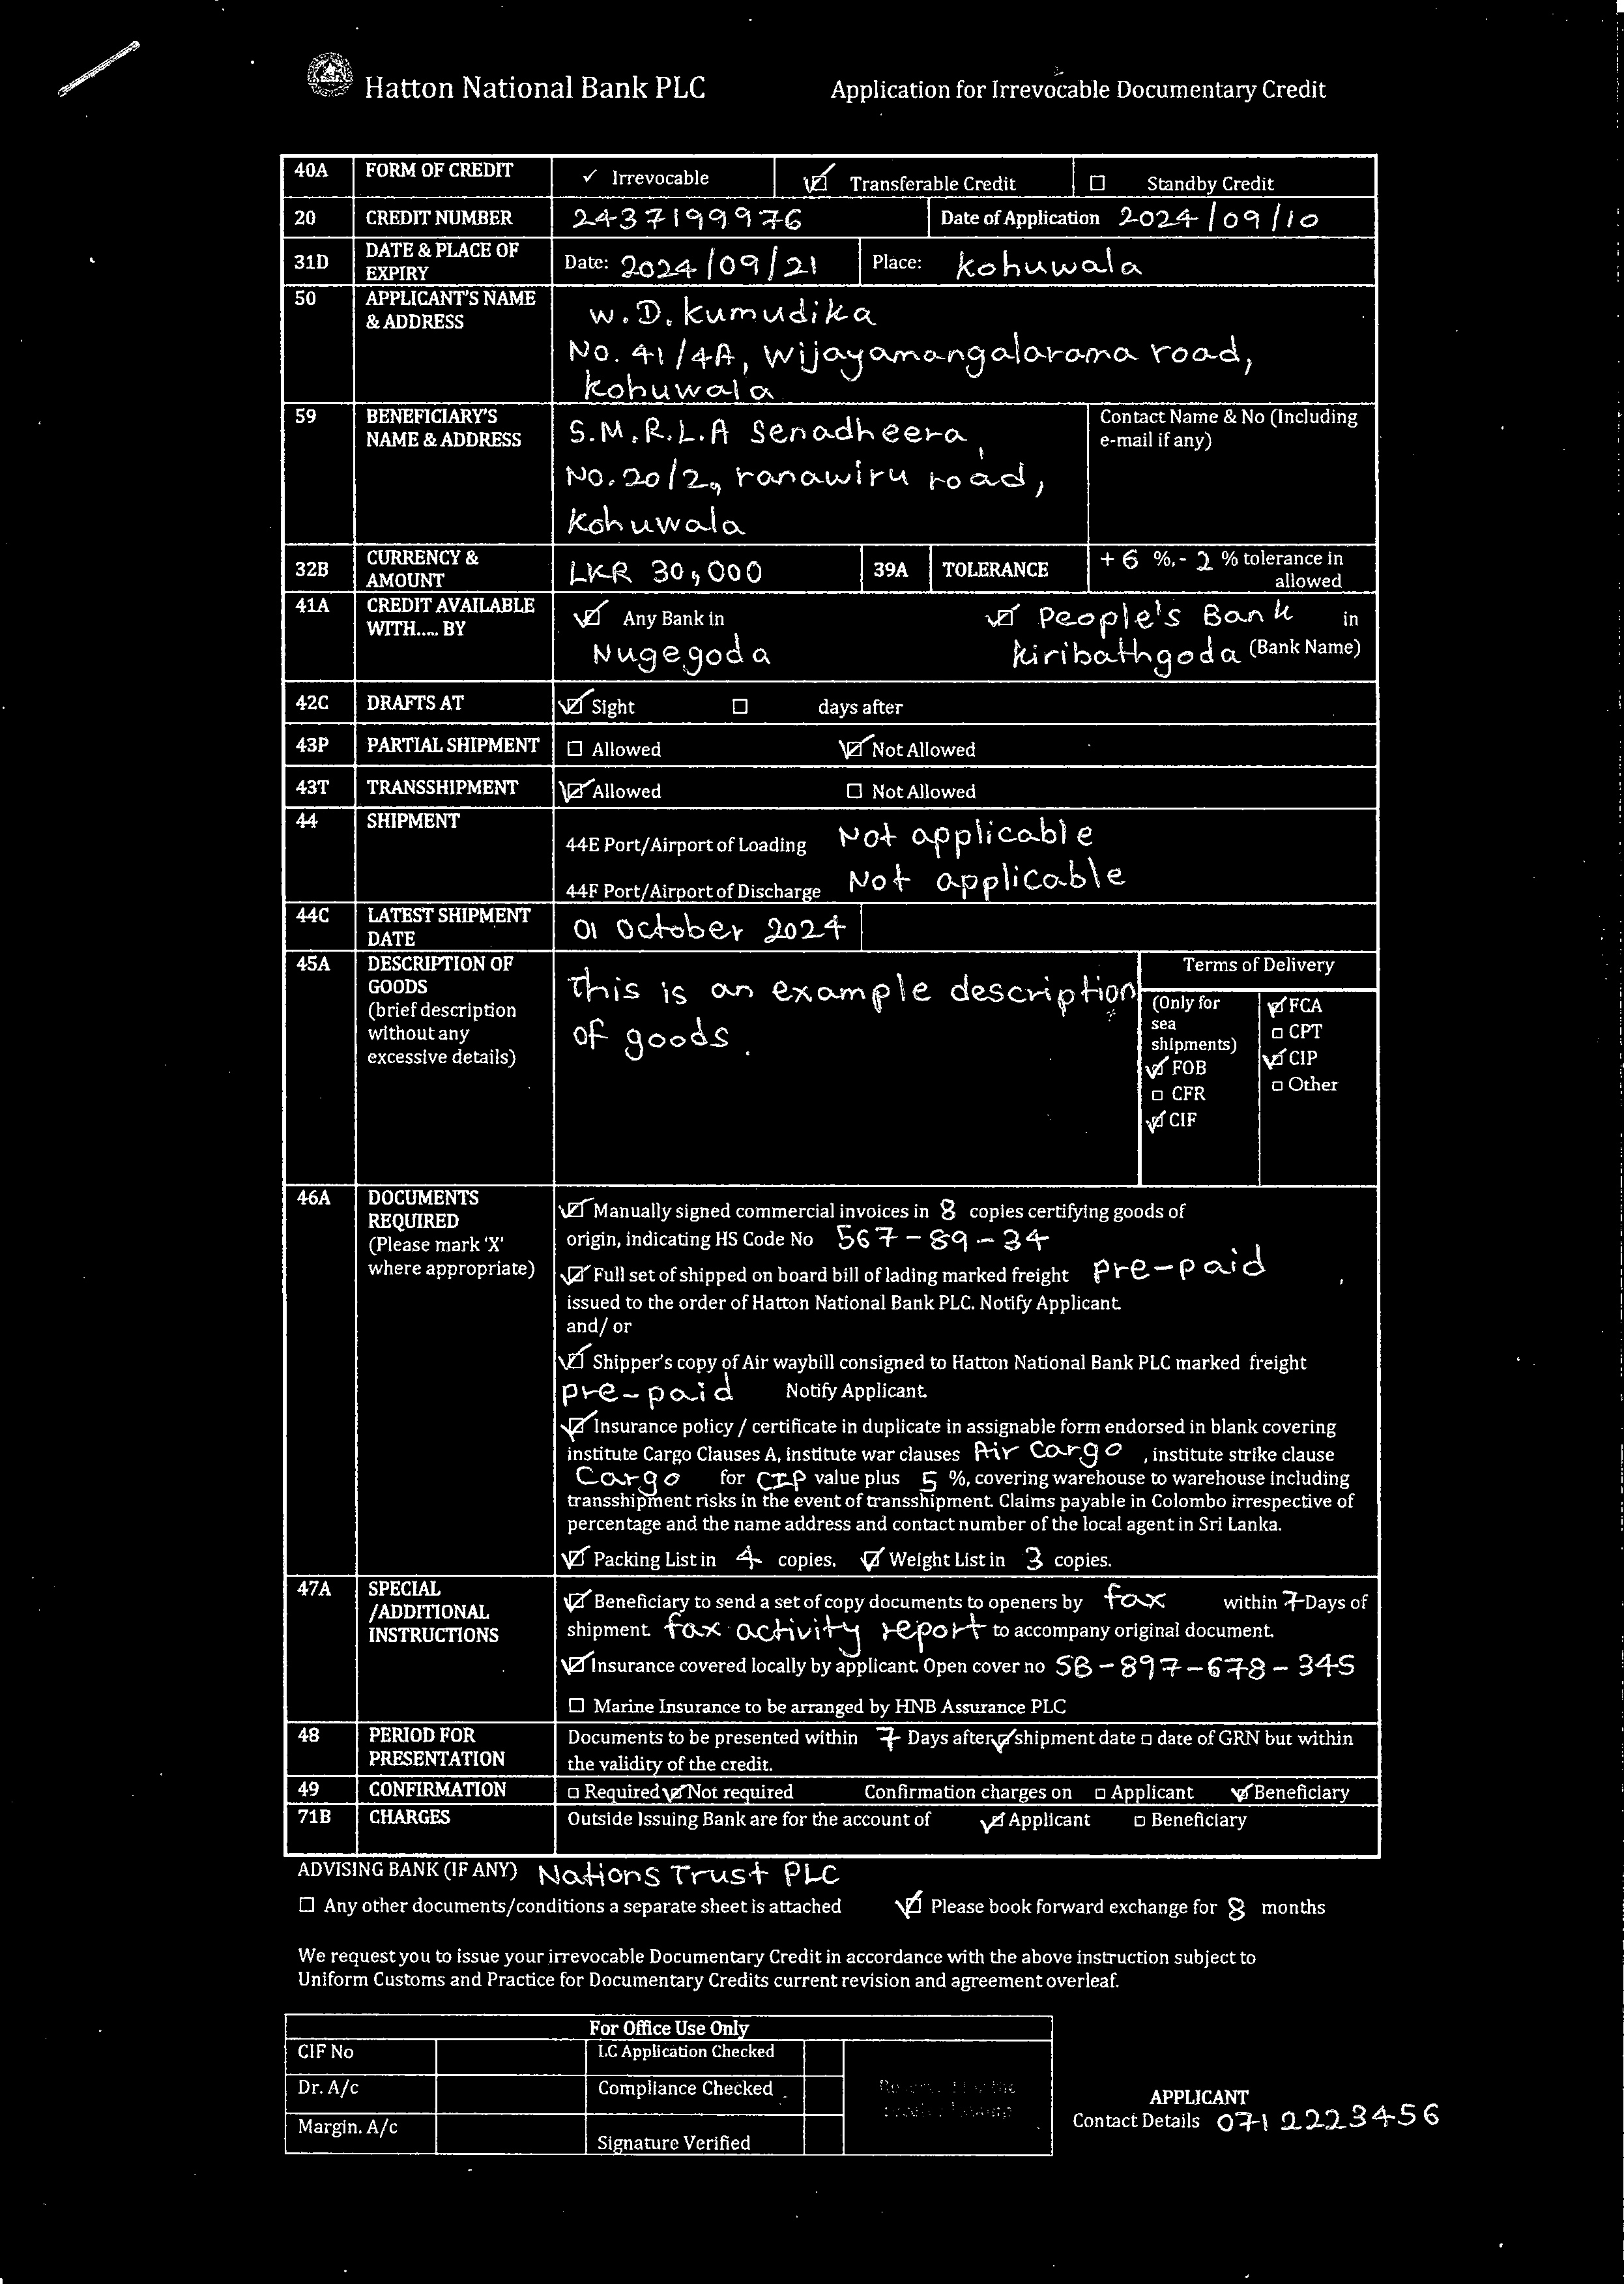 Hatton National Bank PLC Application for Irrevocable Documentary Credit
40A FORM OF CREDIT ✓ Irrevocable ☑ Transferable Credit ☐ Standby Credit
20 CREDIT NUMBER 2437199976 Date of Application 2024/09/10
31D DATE & PLACE OF EXPIRY Date: 2024/09/21 Place: Kohuwala
50 APPLICANT'S NAME & ADDRESS
W.D. Kumudika
No. 41/4A, Wijayamangalarama road,
Kohuwala
59 BENEFICIARY'S NAME & ADDRESS
S.M.R.L.A Senadheera,
No.20/2, ranawiru road,
Kohuwala
Contact Name & No (Including
e-mail if any)
32B CURRENCY & AMOUNT LKR 30,000 39A TOLERANCE + 6 %,- 2 % tolerance in
allowed
41A CREDIT AVAILABLE WITH..... BY
☑ Any Bank in ☑ People's Bank in
Nugegoda Kiribathgoda (Bank Name)
42C DRAFTS AT ☑ Sight ☐ days after
43P PARTIAL SHIPMENT ☐ Allowed ☑ Not Allowed
43T TRANSSHIPMENT ☑ Allowed ☐ Not Allowed
44 SHIPMENT
44E Port/Airport of Loading Not applicable
44F Port/Airport of Discharge Not applicable
44C LATEST SHIPMENT DATE 01 October 2024
45A DESCRIPTION OF GOODS
(brief description
without any
excessive details)
This is an example description
of goods.
Terms of Delivery
(Only for
sea
shipments)
☑ FOB
☐ CFR
☑ CIF
☑ FCA
☐ CPT
☑ CIP
☐ Other
46A DOCUMENTS REQUIRED
(Please mark 'X'
where appropriate)
☑ Manually signed commercial invoices in 8 copies certifying goods of
origin, indicating HS Code No 567-89-34
☑ Full set of shipped on board bill of lading marked freight pre-paid ,
issued to the order of Hatton National Bank PLC. Notify Applicant.
and/ or
☑ Shipper's copy of Air waybill consigned to Hatton National Bank PLC marked freight
pre-paid Notify Applicant.
☑ Insurance policy / certificate in duplicate in assignable form endorsed in blank covering
institute Cargo Clauses A, institute war clauses Air Cargo , institute strike clause
Cargo for CIP value plus 5 %, covering warehouse to warehouse including
transshipment risks in the event of transshipment. Claims payable in Colombo irrespective of
percentage and the name address and contact number of the local agent in Sri Lanka.
☑ Packing List in 4 copies. ☑ Weight List in 3 copies.
47A SPECIAL /ADDITIONAL INSTRUCTIONS
☑ Beneficiary to send a set of copy documents to openers by fax within 7 Days of
shipment. fax activity report to accompany original document.
☑ Insurance covered locally by applicant. Open cover no 5B-897-678-345
☐ Marine Insurance to be arranged by HNB Assurance PLC
48 PERIOD FOR PRESENTATION
Documents to be presented within 7 Days after ☑ shipment date ☐ date of GRN but within
the validity of the credit.
49 CONFIRMATION ☐ Required ☑ Not required Confirmation charges on ☐ Applicant ☑ Beneficiary
71B CHARGES Outside Issuing Bank are for the account of ☑ Applicant ☐ Beneficiary
ADVISING BANK (IF ANY) Nations Trust PLC
☐ Any other documents/conditions a separate sheet is attached ☑ Please book forward exchange for 8 months
We request you to issue your irrevocable Documentary Credit in accordance with the above instruction subject to
Uniform Customs and Practice for Documentary Credits current revision and agreement overleaf.
For Office Use Only
CIF No LC Application Checked
Dr. A/c Compliance Checked
Margin. A/c Signature Verified
APPLICANT
Contact Details 071 2223456